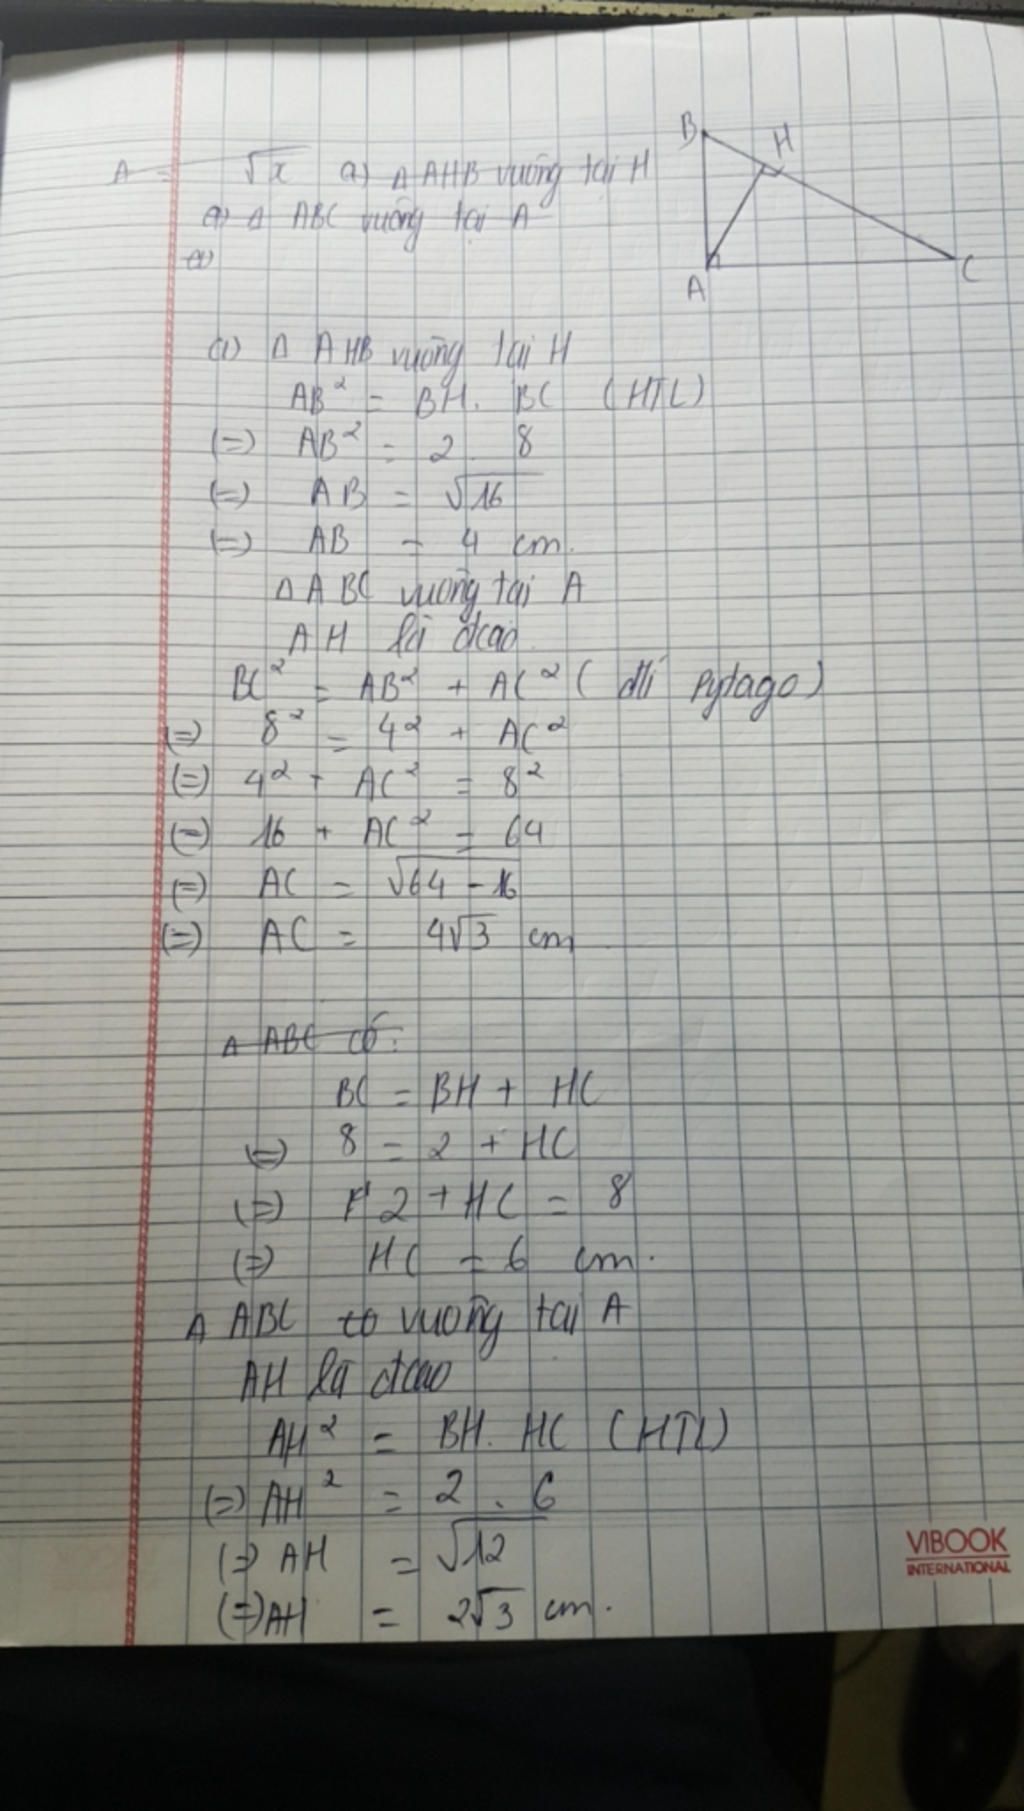 A = √x a) Δ AHB vuông tại H
a) Δ ABC vuông tại A
a)
B
H
A
C
a) Δ AHB vuông tại H
AB² = BH. BC (HTL)
(=) AB² = 2 . 8
(=) AB = √16
(=) AB = 4 cm.
Δ ABC vuông tại A
AH là đcao
BC² = AB² + AC² ( đlí Pytago)
(=) 8² = 4² + AC²
(=) 4² + AC² = 8²
(=) 16 + AC² = 64
(=) AC = √64 - 16
(=) AC = 4√3 cm
Δ ABC có:
BC = BH + HC
(=) 8 = 2 + HC
(=) 2 + HC = 8
(=) HC = 6 cm.
Δ ABC có vuông tại A
AH là đcao
AH² = BH. HC (HTL)
(=) AH² = 2 . 6
(=) AH = √12
(=) AH = 2√3 cm.
VIBOOK
INTERNATIONAL